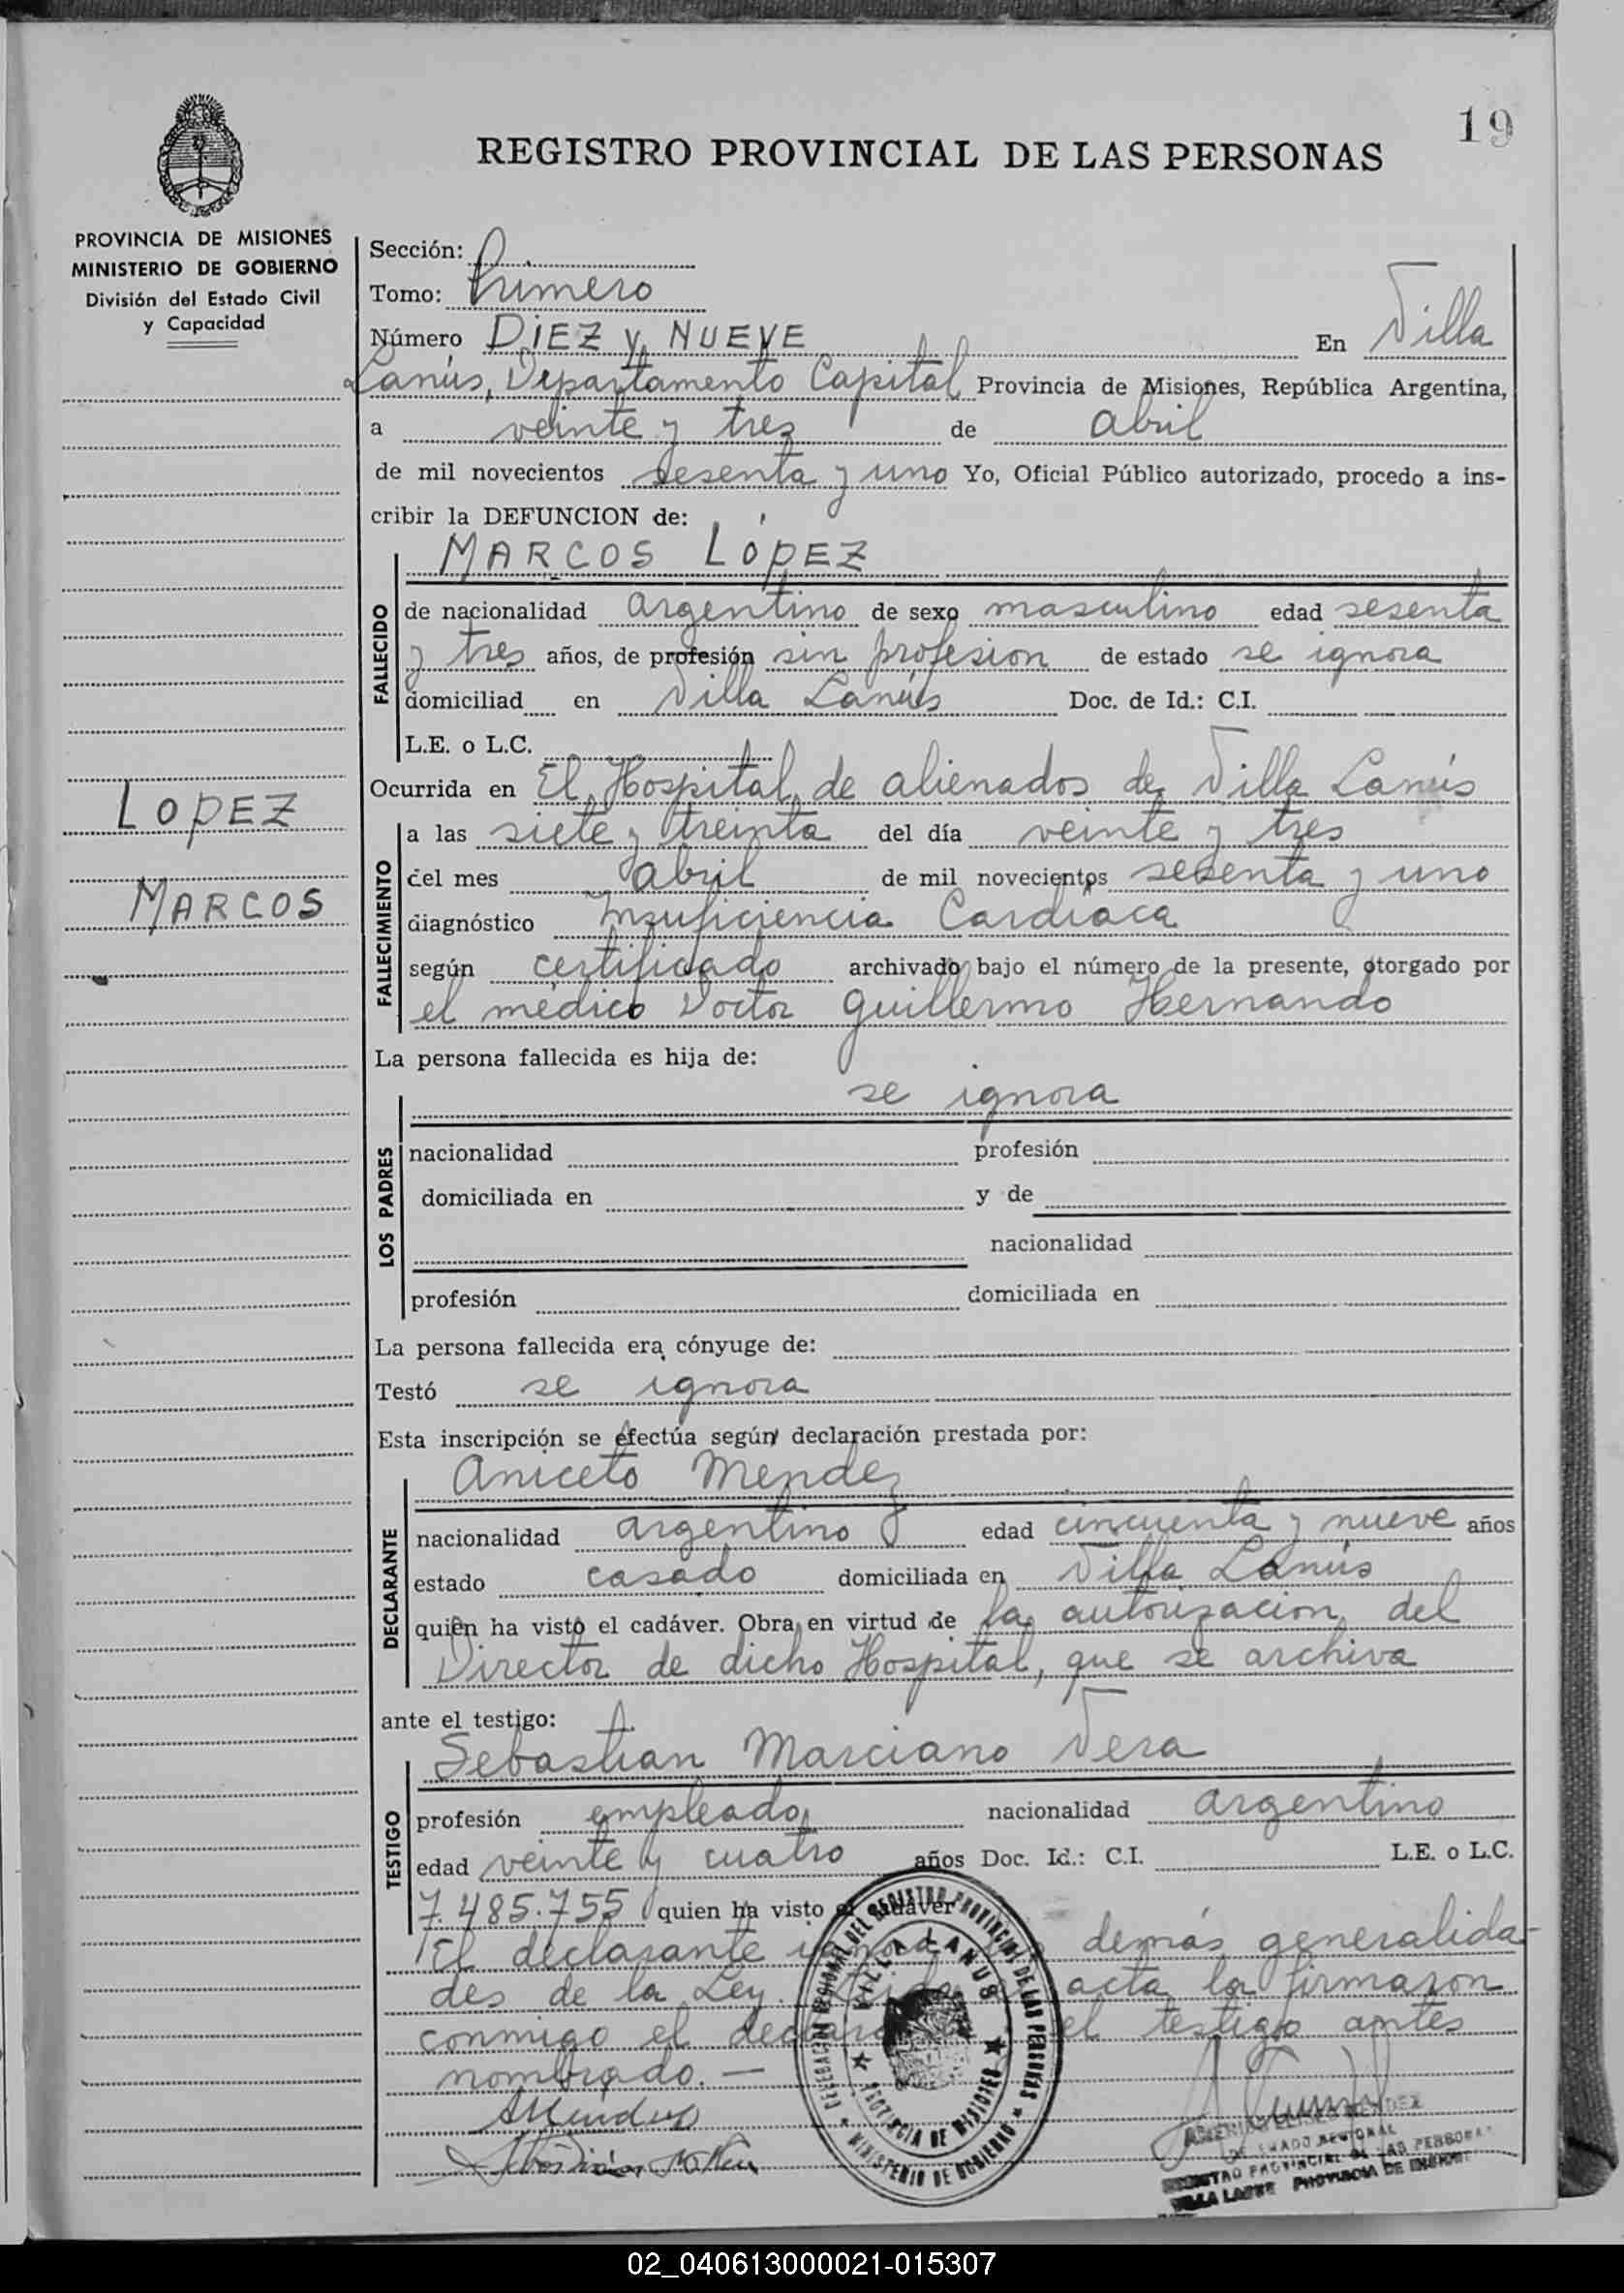 19
REGISTRO PROVINCIAL DE LAS PERSONAS
PROVINCIA DE MISIONES
MINISTERIO DE GOBIERNO
División del Estado Civil
y Capacidad
LOPEZ
MARCOS
Sección:
Tomo: Primero
Número DIEZ Y NUEVE En Villa
Lanús, Departamento Capital Provincia de Misiones, República Argentina,
a veinte y tres de abril
de mil novecientos sesenta y uno Yo, Oficial Público autorizado, procedo a ins-
cribir la DEFUNCION de:
MARCOS LÓPEZ
FALLECIDO
de nacionalidad argentino de sexo masculino edad sesenta
y tres años, de profesión sin profesion de estado se ignora
domiciliad en Villa Lanús Doc. de Id.: C.I.
L.E. o L.C.
Ocurrida en El Hospital de alienados de Villa Lanús
FALLECIMIENTO
a las siete y treinta del día veinte y tres
del mes abril de mil novecientos sesenta y uno
diagnóstico Insuficiencia Cardíaca
según certificado archivado bajo el número de la presente, otorgado por
el médico Doctor Guillermo Hernando
La persona fallecida es hija de:
se ignora
LOS PADRES
nacionalidad profesión
domiciliada en y de
nacionalidad
profesión domiciliada en
La persona fallecida era cónyuge de:
Testó se ignora
Esta inscripción se efectúa según declaración prestada por:
Aniceto Mendez
DECLARANTE
nacionalidad argentino edad cincuenta y nueve años
estado casado domiciliada en Villa Lanús
quien ha visto el cadáver. Obra en virtud de la autorizacion del
Director de dicho Hospital, que se archiva
ante el testigo:
Sebastian Marciano Vera
TESTIGO
profesión empleado nacionalidad argentino
edad veinte y cuatro años Doc. Id.: C.I. L.E. o L.C.
7.485.755 quien ha visto el cadáver
El declarante ignora demás generalida-
des de la Ley. acta la firmaron
conmigo el el testigo antes
nombrado. —
AMendez
DELEGACION REGIONAL DEL REGISTRO PROVINCIAL DE LAS PERSONAS
VILLA LANUS
PROVINCIA DE MISIONES
MINISTERIO DE GOBIERNO
REGISTRO PROVINCIAL DE LAS PERSONAS
PROVINCIA DE
02_040613000021-015307